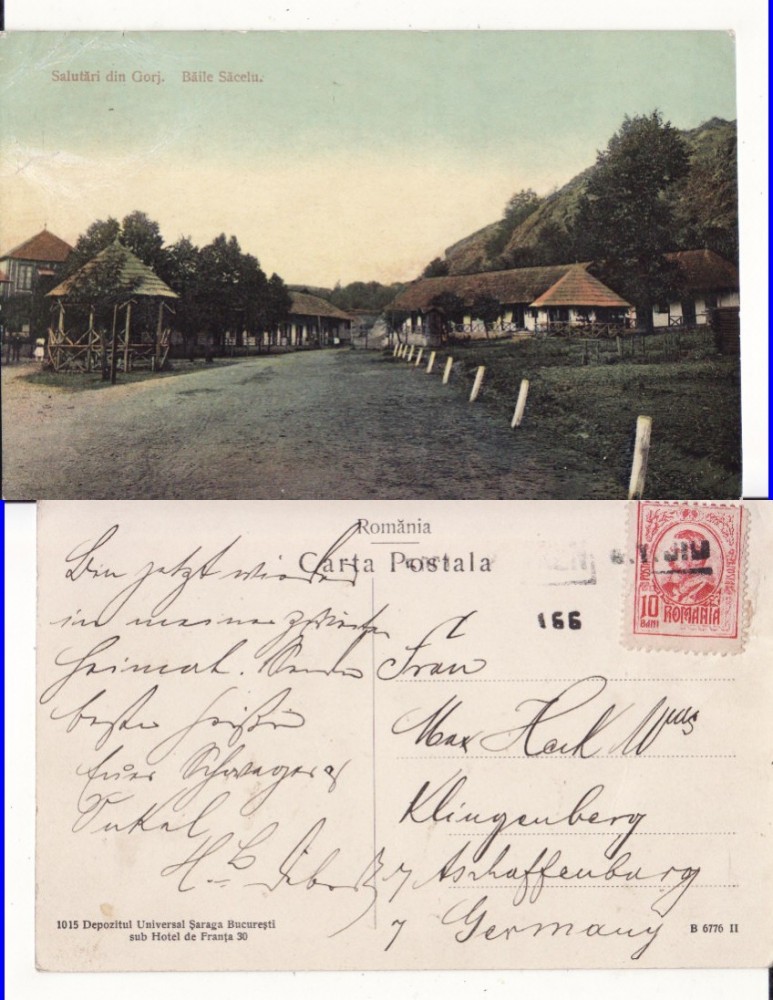 Salutări din Gorj. Băile Săcelu.
România
Carta Postala
JIU
166
10
BANI
ROMANIA
Bin jetzt wieder
in meiner zweiten
Heimat. Sende
beste Grüße
Euer Schwager &
Onkel
H.
Frau
Max Heck Wwe
Klingenberg
Aschaffenburg
Germany
1015 Depozitul Universal Șaraga București
sub Hotel de Franța 30
B 6776 II